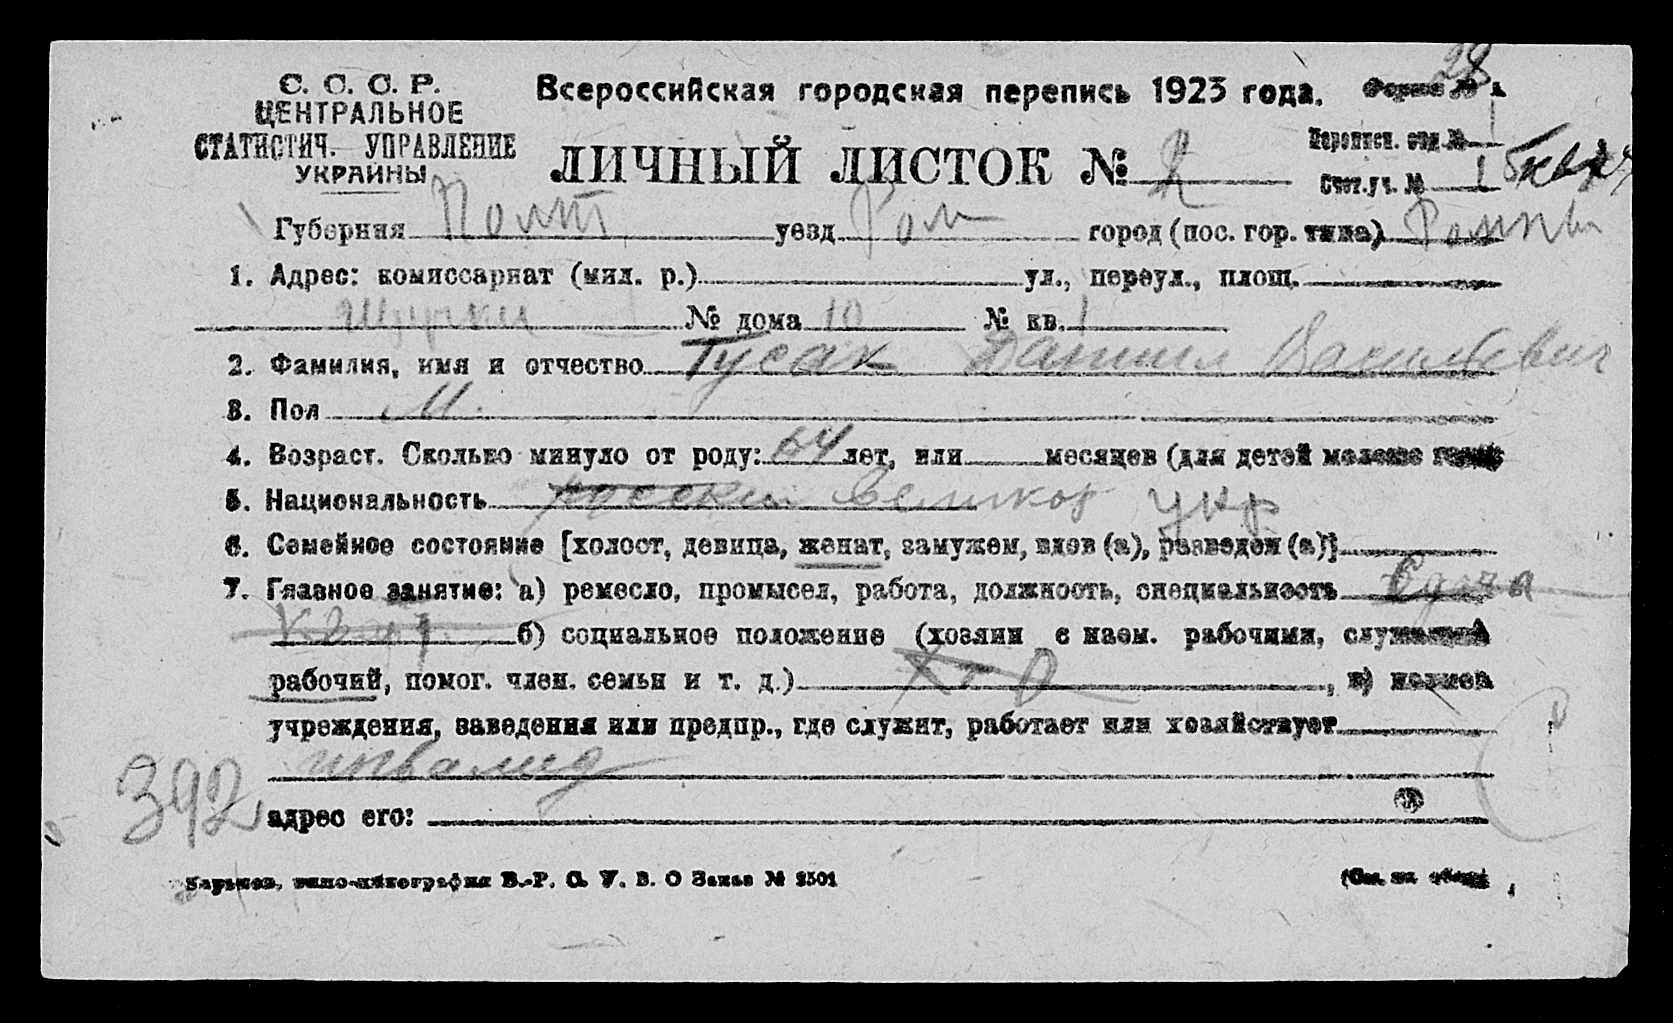 С. С. С. Р.
ЦЕНТРАЛЬНОЕ
СТАТИСТИЧ. УПРАВЛЕНИЕ
УКРАИНЫ
Всероссийская городская перепись 1923 года.
28
Форма № 1
ЛИЧНЫЙ ЛИСТОК № 2
Переписн. отд. № 1
Счет. уч. № 1
Губерния Полт уезд Ром город (пос. гор. типа) Ромны
1. Адрес: комиссариат (мил. р.) ул., переул., площ.
Щучки № дома 10 № кв. 1
2. Фамилия, имя и отчество Гусак Даниил Васильевич
3. Пол М.
4. Возраст. Сколько минуло от роду: 64 лет, или месяцев (для детей моложе года)
5. Национальность русский Великор укр
6. Семейное состояние [холост, девица, женат, замужем, вдов (а), разведен (а)]
7. Главное занятие: а) ремесло, промысел, работа, должность, специальность Сдача
кварт б) социальное положение (хозяин с наем. рабочими, служащий
рабочий, помог. член. семьи и т. д.) , в) назван
учреждения, заведения или предпр., где служит, работает или хозяйствует
инвалид
392
адрес его:
Харьков, типо-литография В.-Р. С. У. В. О Заказ № 2501
(См. на обор.)